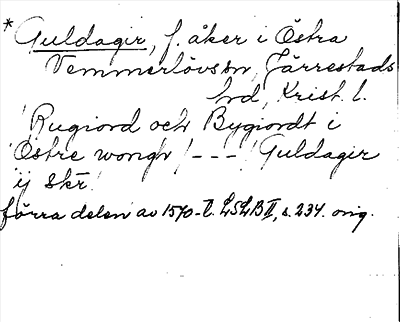 * Guldagir, f. åker i Östra
Vemmerlövs sn, Järrestads
hd, Krist. l.
Rugiord och Bygiordt i
Östre wongh / - - - Guldagir
ij skr
förra delen av 1570-t. LSLB II, s. 234. orig.